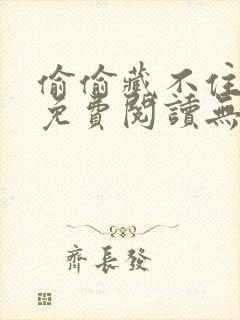 偷偷藏不住
免費閱讀無
齊長發